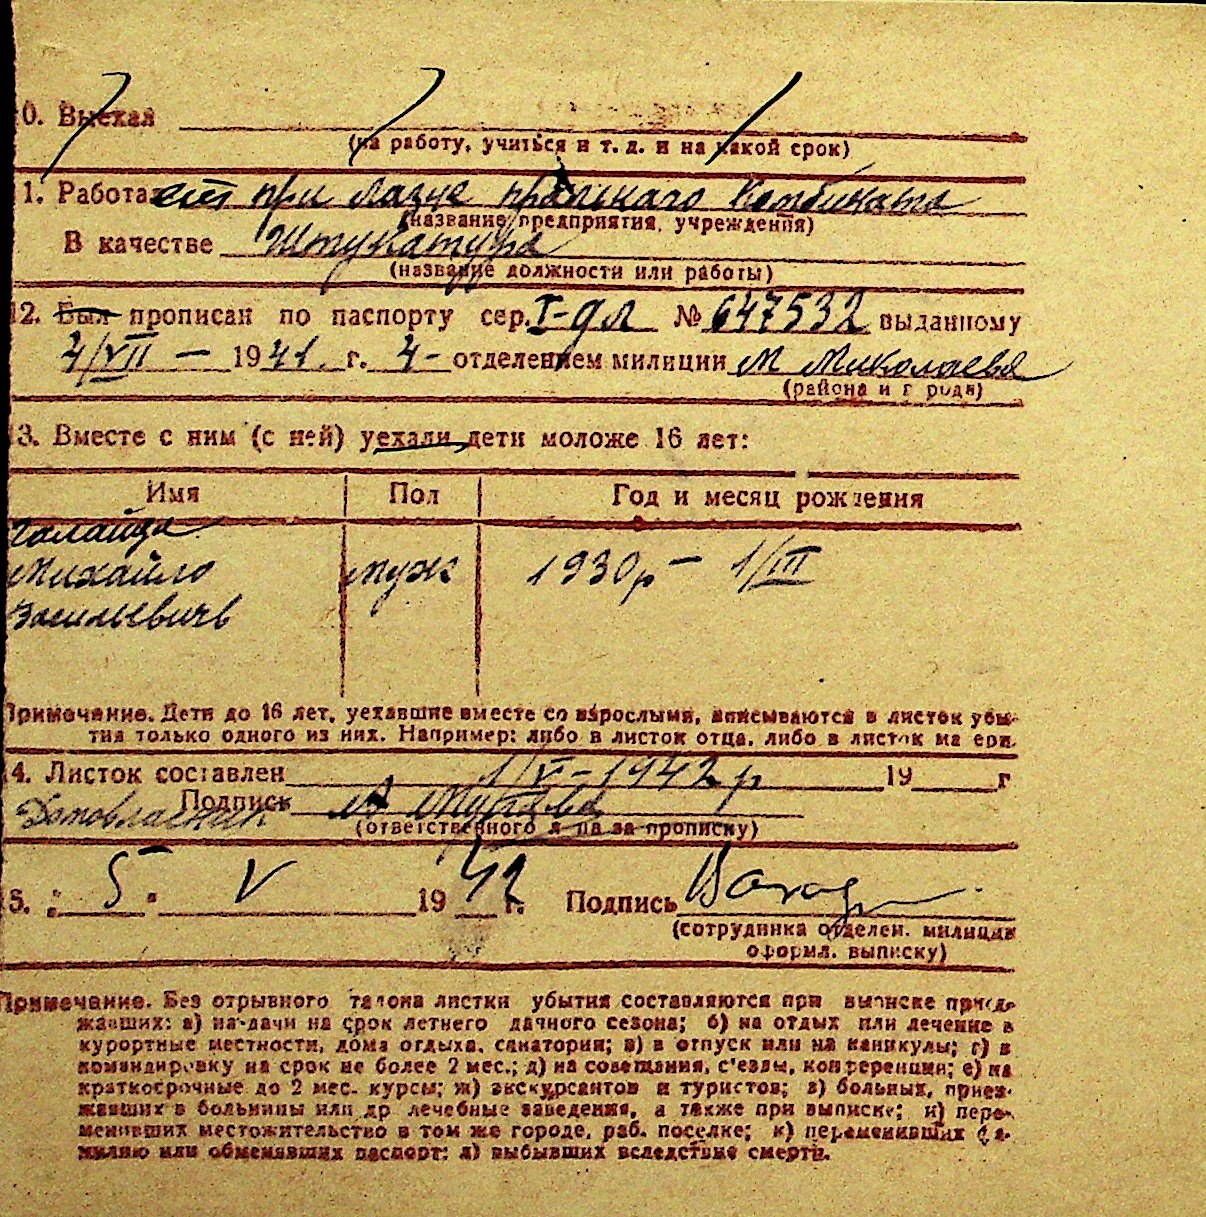 0. Выехал
(на работу, учиться и т. д. и на какой срок)
1. Работает при Лазне комбината
(название предприятия, учреждения)
В качестве Штукатура
(название должности или работы)
2. Был прописан по паспорту сер. I-дл № 647532 выданному
4/VII — 1941. г. 4- отделением милиции М Миколаева
(района и г рода)
3. Вместе с ним (с ней) уехали дети моложе 16 лет:
Имя Пол Год и месяц рождения
Галайда
Михайло муж 1930р – 1/III
Васильевичь
Примечание. Дети до 16 лет, уехавшие вместе со взрослыми, вписываются в листок убы-
тия только одного из них. Например: либо в листок отца, либо в листок ма ери.
4. Листок составлен 1/V–1942 р 19 г
Домовласник Подпись А
(ответственного л па за прописку)
5. " 5 " V 19 42 г. Подпись
(сотрудника отделен. милиции
оформл. выписку)
Примечание. Без отрывного талона листки убытия составляются при выписке приез-
жавших: а) на дачи на срок летнего дачного сезона; б) на отдых или лечение в
курортные местности, дома отдыха, санатории; в) в отпуск или на каникулы; г) в
командировку на срок не более 2 мес.; д) на совещания, с'езды, конференции; е) на
краткосрочные до 2 мес. курсы; ж) экскурсантов и туристов; з) больных, приез-
жавших в больницы или др лечебные заведения, а также при выписке; и) пере-
менивших местожительство в том же городе, раб. поселке; к) переменивших фа-
милию или обменявших паспорт; л) выбывших вследствие смерти.